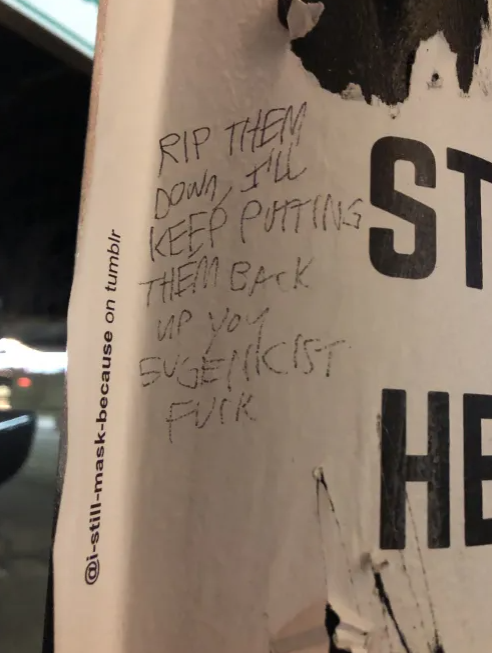 RIP THEM
DOWN, I'LL
KEEP PUTTING
THEM BACK
UP YOU
EUGENICIST
FUCK
ST
HE
@i-still-mask-because on tumblr